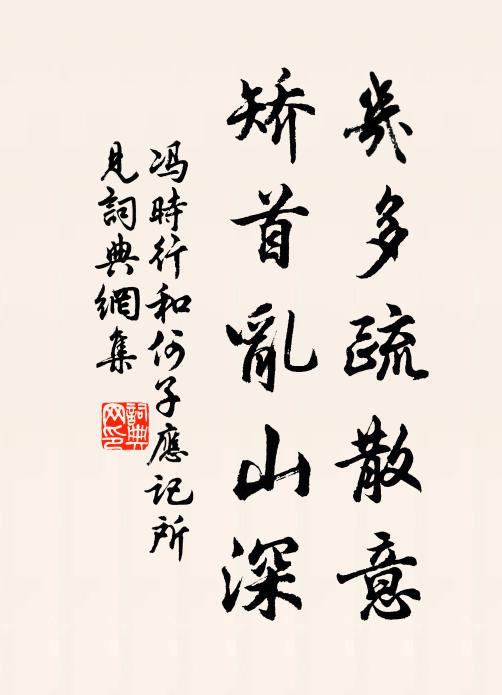 幾多疏散意
矯首亂山深
冯時行和何子應記所
見詞典網集
詞典
网印